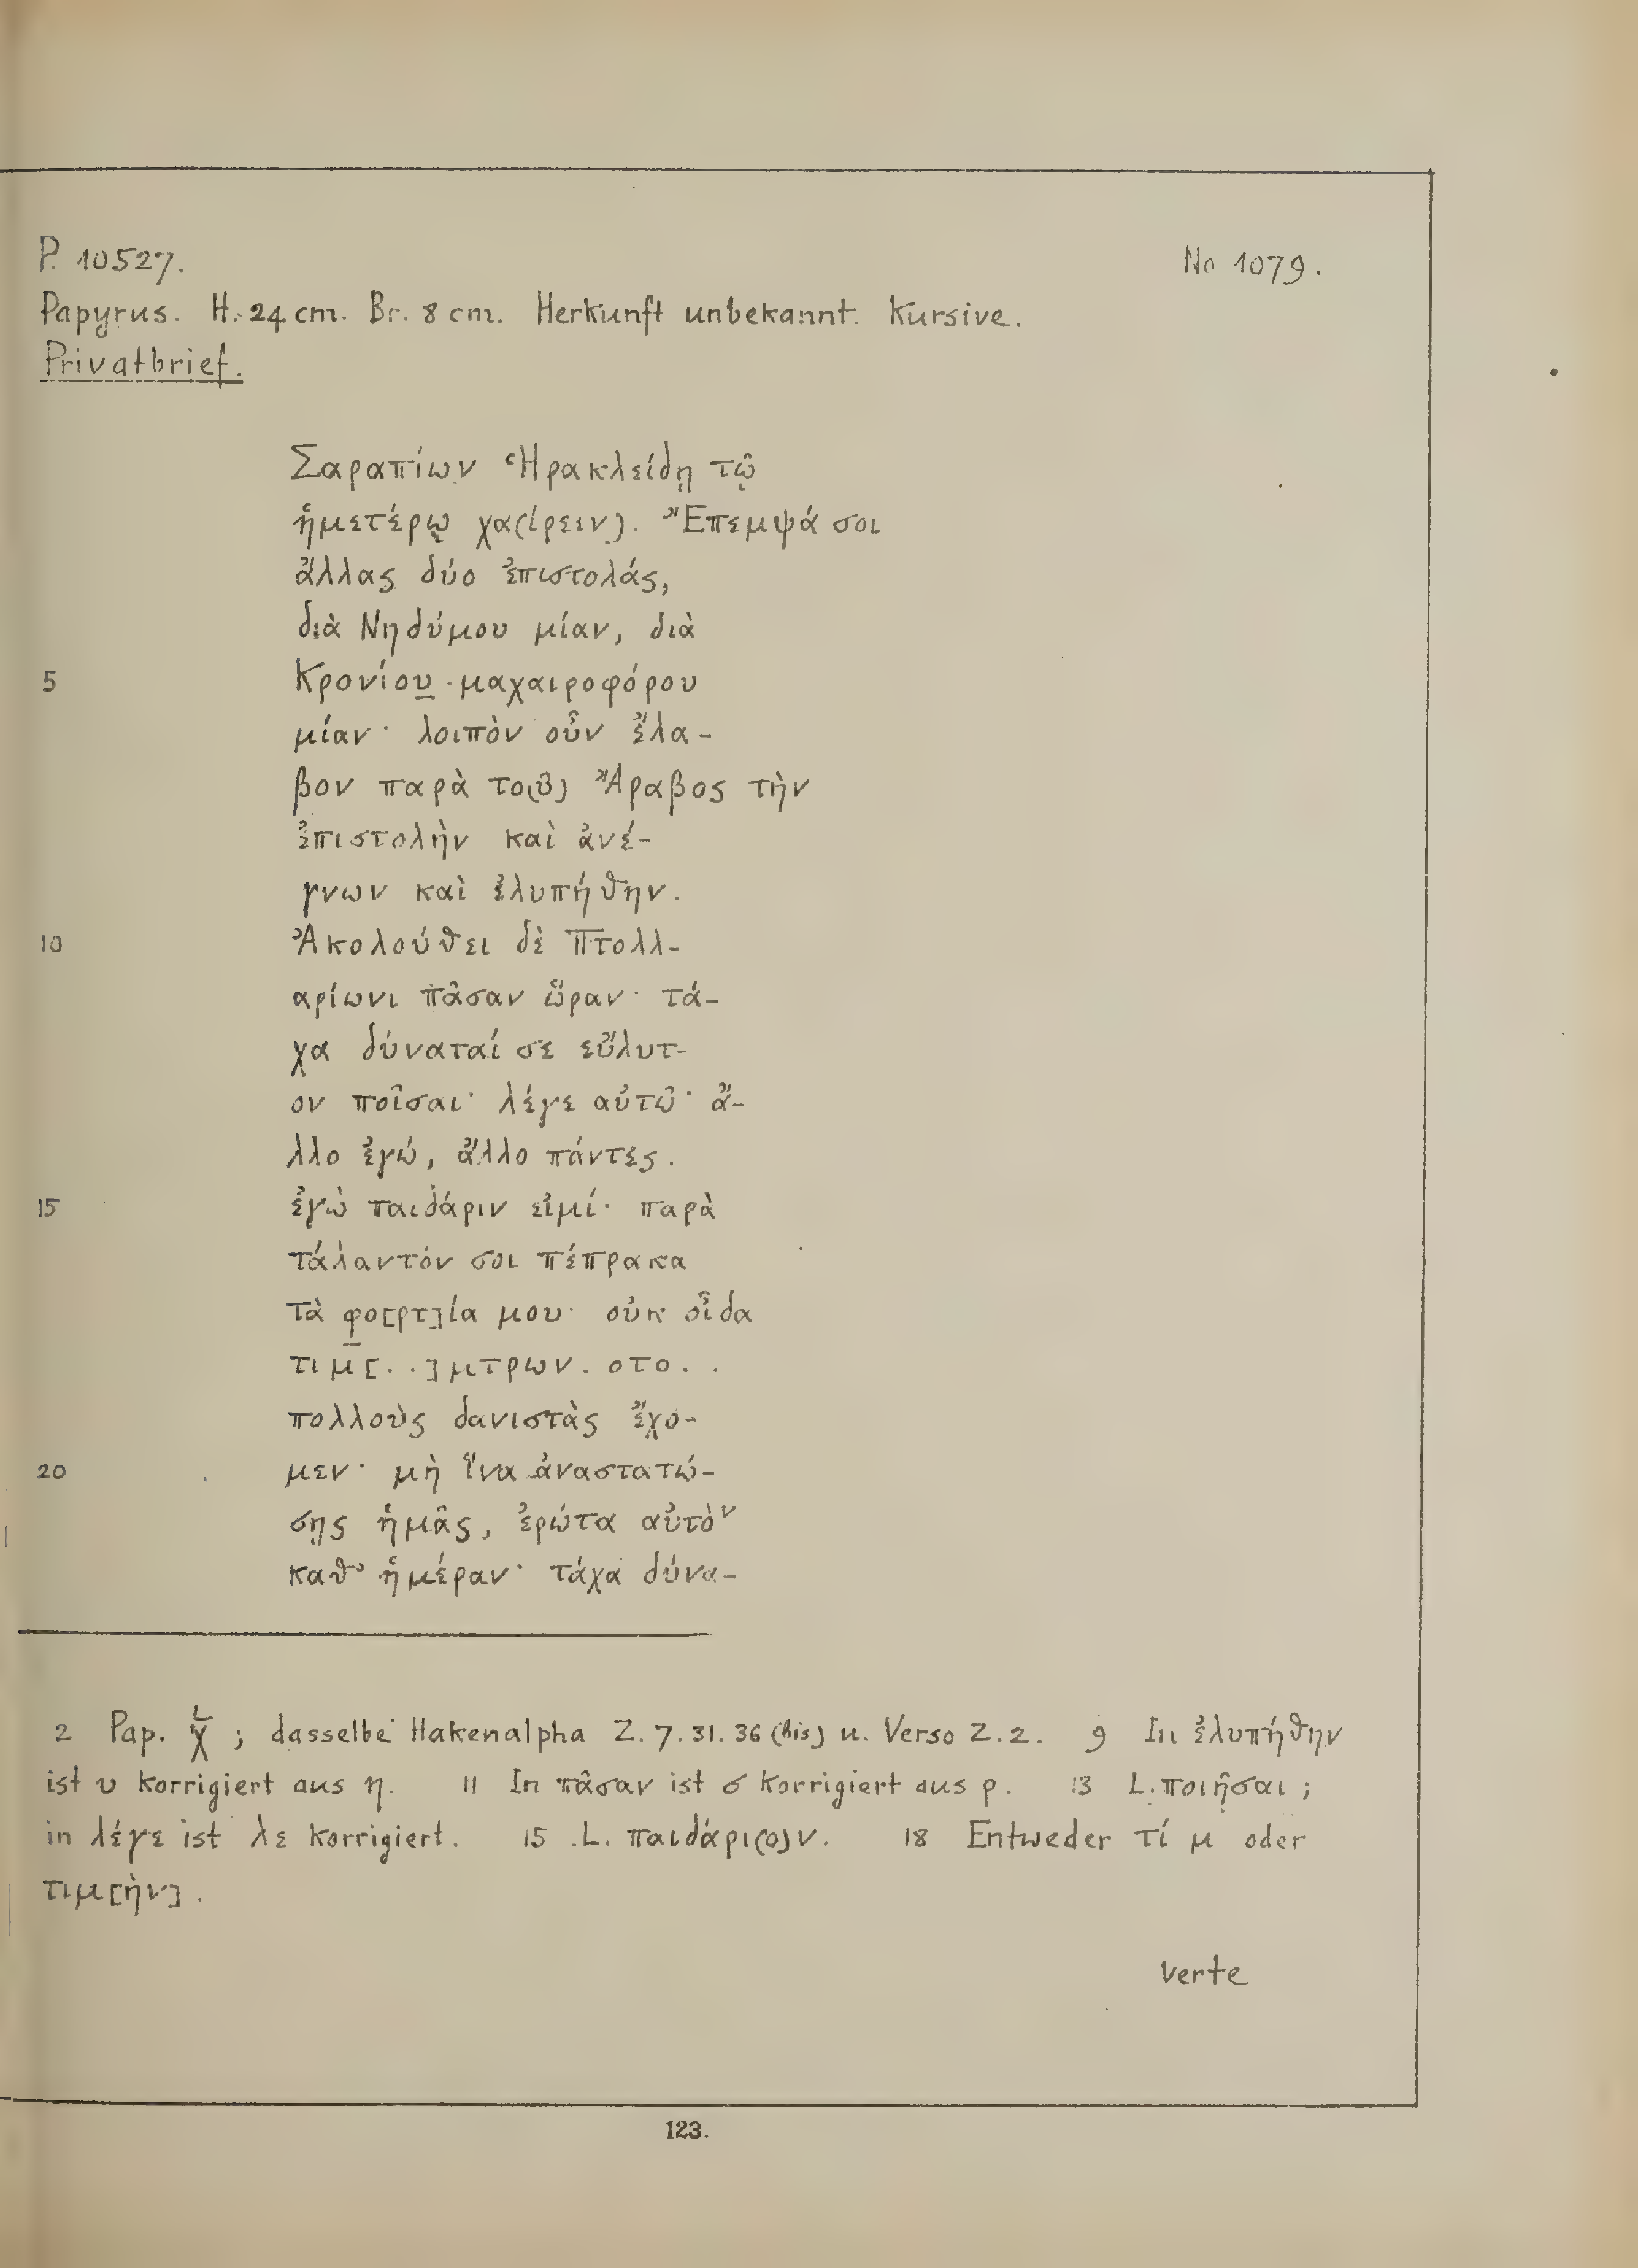 P. 10527. No 1079.
Papyrus. H. 24 cm. Br. 8 cm. Herkunft unbekannt. Kursive.
Privatbrief.
Σαραπίων Ἡρακλείδῃ τῷ
ἡμετέρῳ χα(ίρειν). Ἔπεμψά σοι
ἄλλας δύο ἐπιστολάς,
διὰ Νηδύμου μίαν, διὰ
5 Κρονίου μαχαιροφόρου
μίαν· λοιπὸν οὖν ἔλα-
βον παρὰ το(ῦ) Ἄραβος τὴν
ἐπιστολὴν καὶ ἀνέ-
γνων καὶ ἐλυπήθην.
10 Ἀκολούθει δὲ Πτολλ-
αρίωνι πᾶσαν ὥραν· τά-
χα δύναταί σε εὔλυτ-
ον ποῖσαι· λέγε αὐτῷ· ἄ-
λλο ἐγώ, ἄλλο πάντες.
15 ἐγὼ παιδάριν εἰμί· παρὰ
τάλαντόν σοι πέπρακα
τὰ φο[ρτ]ία μου· οὐκ οἶδα
τιμ[. .]μτρων. οτο. .
πολλοὺς δανιστὰς ἔχο-
20 μεν· μὴ ἵνα ἀναστατώ-
σῃς ἡμᾶς, ἐρώτα αὐτὸν
καθ' ἡμέραν· τάχα δύνα-
2 Pap. χ; dasselbe Hakenalpha Z. 7. 31. 36 (bis) u. Verso Z. 2. 9 In ἐλυπήθην
ist υ korrigiert aus η. 11 In πᾶσαν ist σ korrigiert aus ρ. 13 L. ποιῆσαι;
in λέγε ist λε korrigiert. 15 L. παιδάρι(ο)ν. 18 Entweder τί μ oder
τιμ[ὴν].
verte
123.